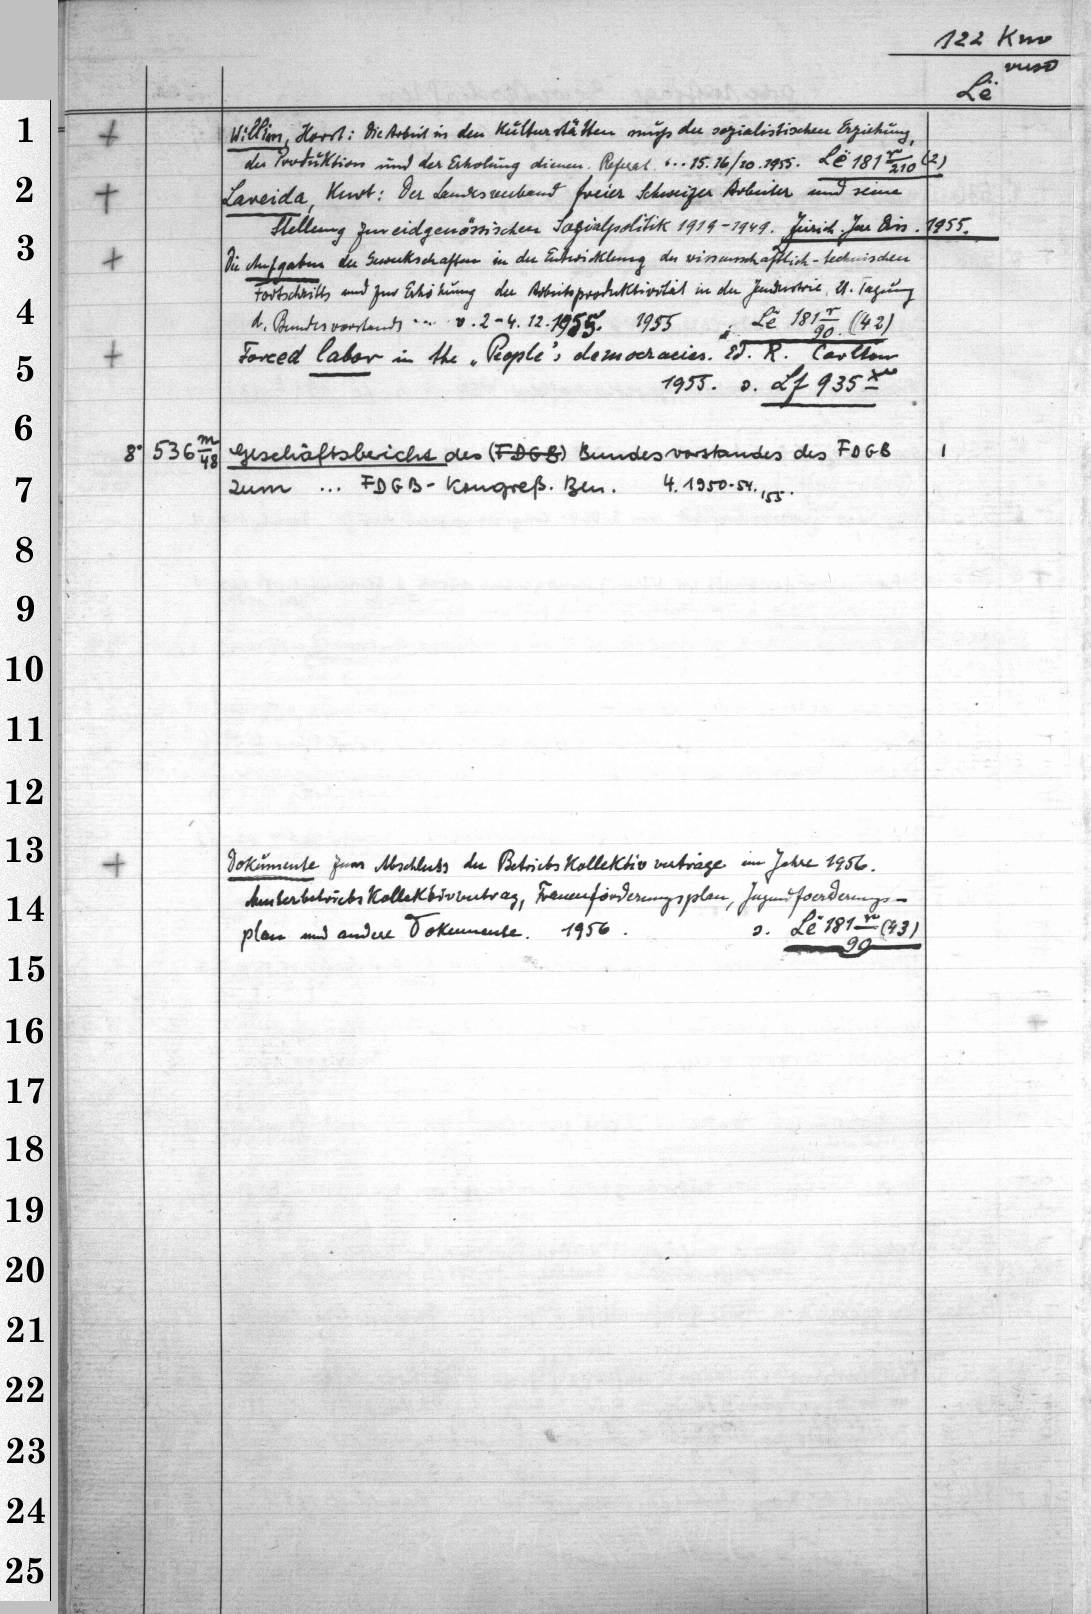 122 Kno
verso
Lë
1 + Willim, Horst: Die Arbeit in den Kulturstätten muß der sozialistischen Erziehung,
der Produktion und der Erholung dienen. Referat ... 15.16/10.1955. Lë 181 r/210 (2)
2 + Laveida, Kurt: Der Landesverband freier Schweizer Arbeiter und seine
Stellung zur eidgenössischen Sozialpolitik 1919-1949. Zürich. Jur Diss. 1955.
3 + Die Aufgaben der Gewerkschaften in der Entwicklung des wissenschaftlich-technischen
Fortschritts und zur Erhöhung der Arbeitsproduktivität in der Industrie. 21. Tagung
4 d. Bundesvorstands ... v. 2-4. 12. 1955. 1955 s. Lë 181 r/90 (42)
5 + Forced labor in the "People's democracies. Ed. R. Carlton
1955. s. Lf 935 x
6
8° 536 m/48 Geschäftsbericht des (FDGB) Bundesvorstandes des FDGB 1
7 zum ... FDGB-Kongreß. Bln. 4. 1950-54. '55.
8
9
10
11
12
13 + Dokumente zum Abschluss der Betriebskollektivverträge im Jahre 1956.
Musterbetriebskollektivvertrag, Frauenförderungsplan, Jugendfoerderungs-
14 plan und andere Dokumente. 1956. s. Lë 181 r/90 (43)
15
16
17
18
19
20
21
22
23
24
25